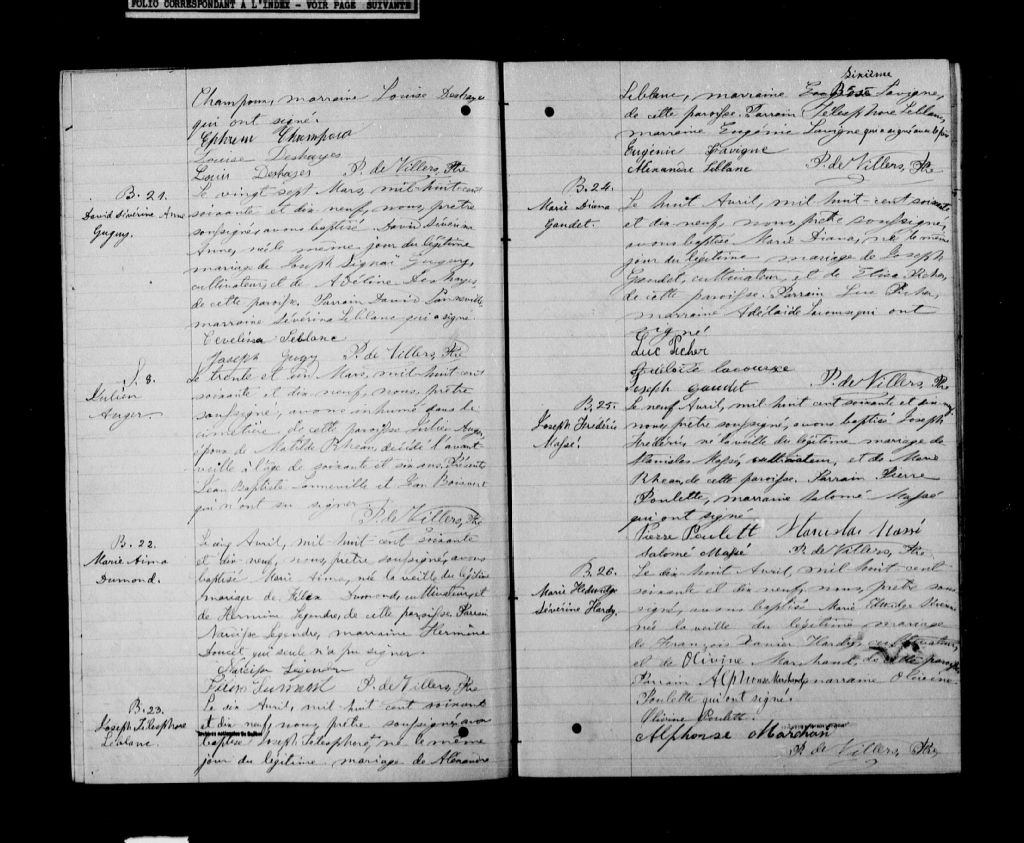 FOLIO CORRESPONDANT A L'INDEX - VOIR PAGE SUIVANTE
Champoux, marraine Louise Deshayes
qui ont signé.
Ephrem Champoux
Louise Deshayes
Louis Deshayes P. de Villers, Ptre
B. 21.
David Sévérine Anne
Guguy.
Le vingt sept Mars, mil huit cent
soixante et dix neuf, nous, prêtre
soussigné avons baptisé David Sévérine
Anne, né le même jour du légitime
mariage de Joseph Signaï Guguy,
cultivateur, et de Adéline Deshayes,
de cette paroisse. Parrain David Lanneville
marraine Sévérina Leblanc qui a signé
Cevelina Leblanc
Joseph Gugy P. de Villers, Ptre
S. 8.
Julien
Auger
Le trente et un Mars, mil huit cent
soixante et dix neuf, nous, prêtre
soussigné, avons inhumé dans le
cimetière de cette paroisse Julien Auger,
époux de Matilde Rheau, décédé l'avant
veille à l'âge de soixante et six ans. Présents
Jean Baptiste Lanneville et Léon Boisvert
qui n'ont su signer.
P. de Villers, Ptre
B. 22.
Marie Aima
Dumond.
Le cinq Avril, mil huit cent soixante
et dix neuf, nous, prêtre soussigné, avons
baptisé Marie Aima, née la veille du légitime
mariage de Félix Dumond, cultivateur, et
de Hermine Legendre, de cette paroisse. Parrain
Narcisse Legendre, marraine Hermine
Doucet qui seule n'a pu signer.
Narcisse Legendre
Félix Dumont P. de Villers, Ptre
B. 23.
Joseph Télesphore
Leblanc.
Le six Avril, mil huit cent soixante
et dix neuf, nous, prêtre soussigné, avons
Archives nationales du Québec
baptisé Joseph Télesphore, né le même
jour du légitime mariage de Alexandre
Sixième
Leblanc, marraine Lavigne,
de cette paroisse. Parrain Télesphore Leblanc,
marraine Eugénie Lavigne qui a signé avec le père
Eugénie Lavigne
Alexandre Leblanc P. de Villers, Ptre
B. 24.
Marie Diana
Gaudet.
Le huit Avril, mil huit cent soixante
et dix neuf, nous, prêtre soussigné,
avons baptisé Marie Diana, née le même
jour du légitime mariage de Joseph
Gaudet, cultivateur, et de Elisa Picher,
de cette paroisse. Parrain Luc Picher,
marraine Adélaïde Lacourse qui ont
signé
Luc Picher
Adélaïde Lacourse
Joseph Gaudet P. de Villers, Ptre
B. 25.
Joseph Frédéric
Massé.
Le neuf Avril, mil huit cent soixante et dix neuf
nous, prêtre soussigné, avons baptisé Joseph
Frédéric, né la veille du légitime mariage de
Stanislas Massé, cultivateur, et de Marie
Rheau, de cette paroisse. Parrain Pierre
Poulette, marraine Salomé Massé
qui ont signé
Pierre Poulett Stanislas Massé
Salomé Massé P. de Villers, Ptre
B. 26.
Marie Hedwidge
Sévérine Hardy.
Le dix huit Avril, mil huit cent
soixante et dix neuf, nous, prêtre sous
signé, avons baptisé Marie Hedwidge Sévérine
née la veille du légitime mariage
de François Xavier Hardy, cultivateur,
et de Olivine Marchand, de cette paroisse.
Parrain Alphonse Marchand, marraine Olivine
Poulette qui ont signé.
Olivine Poulette.
Alphonse Marchan
P. de Villers, Ptre